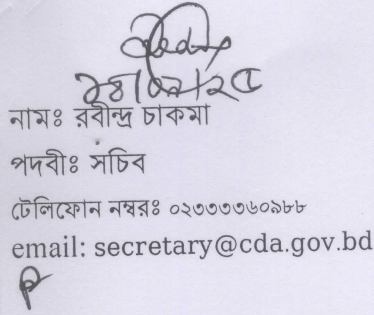 নামঃ রবীন্দ্র চাকমা
পদবীঃ সচিব
টেলিফোন নম্বরঃ ০২৩৩৩৩৬০৯৮৮
email: secretary@cda.gov.bd